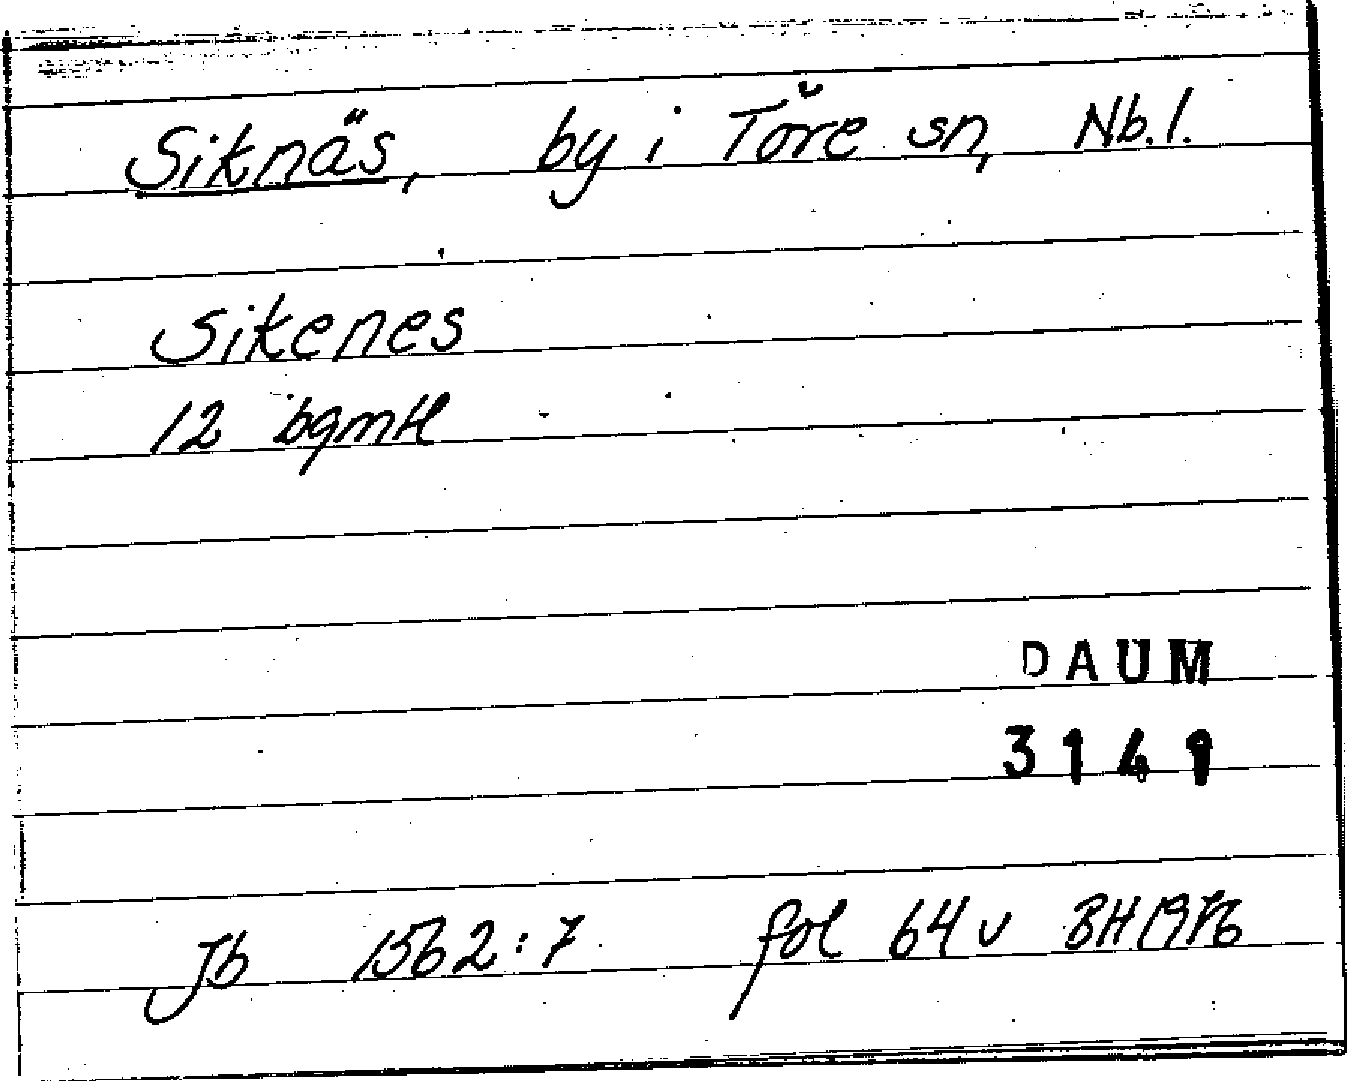 Siknäs, by i Töre sn, Nb.l.
Sikenes
12 bgmtl
DAUM
3141
Jb 1562:7 fol 64 v BH 1976